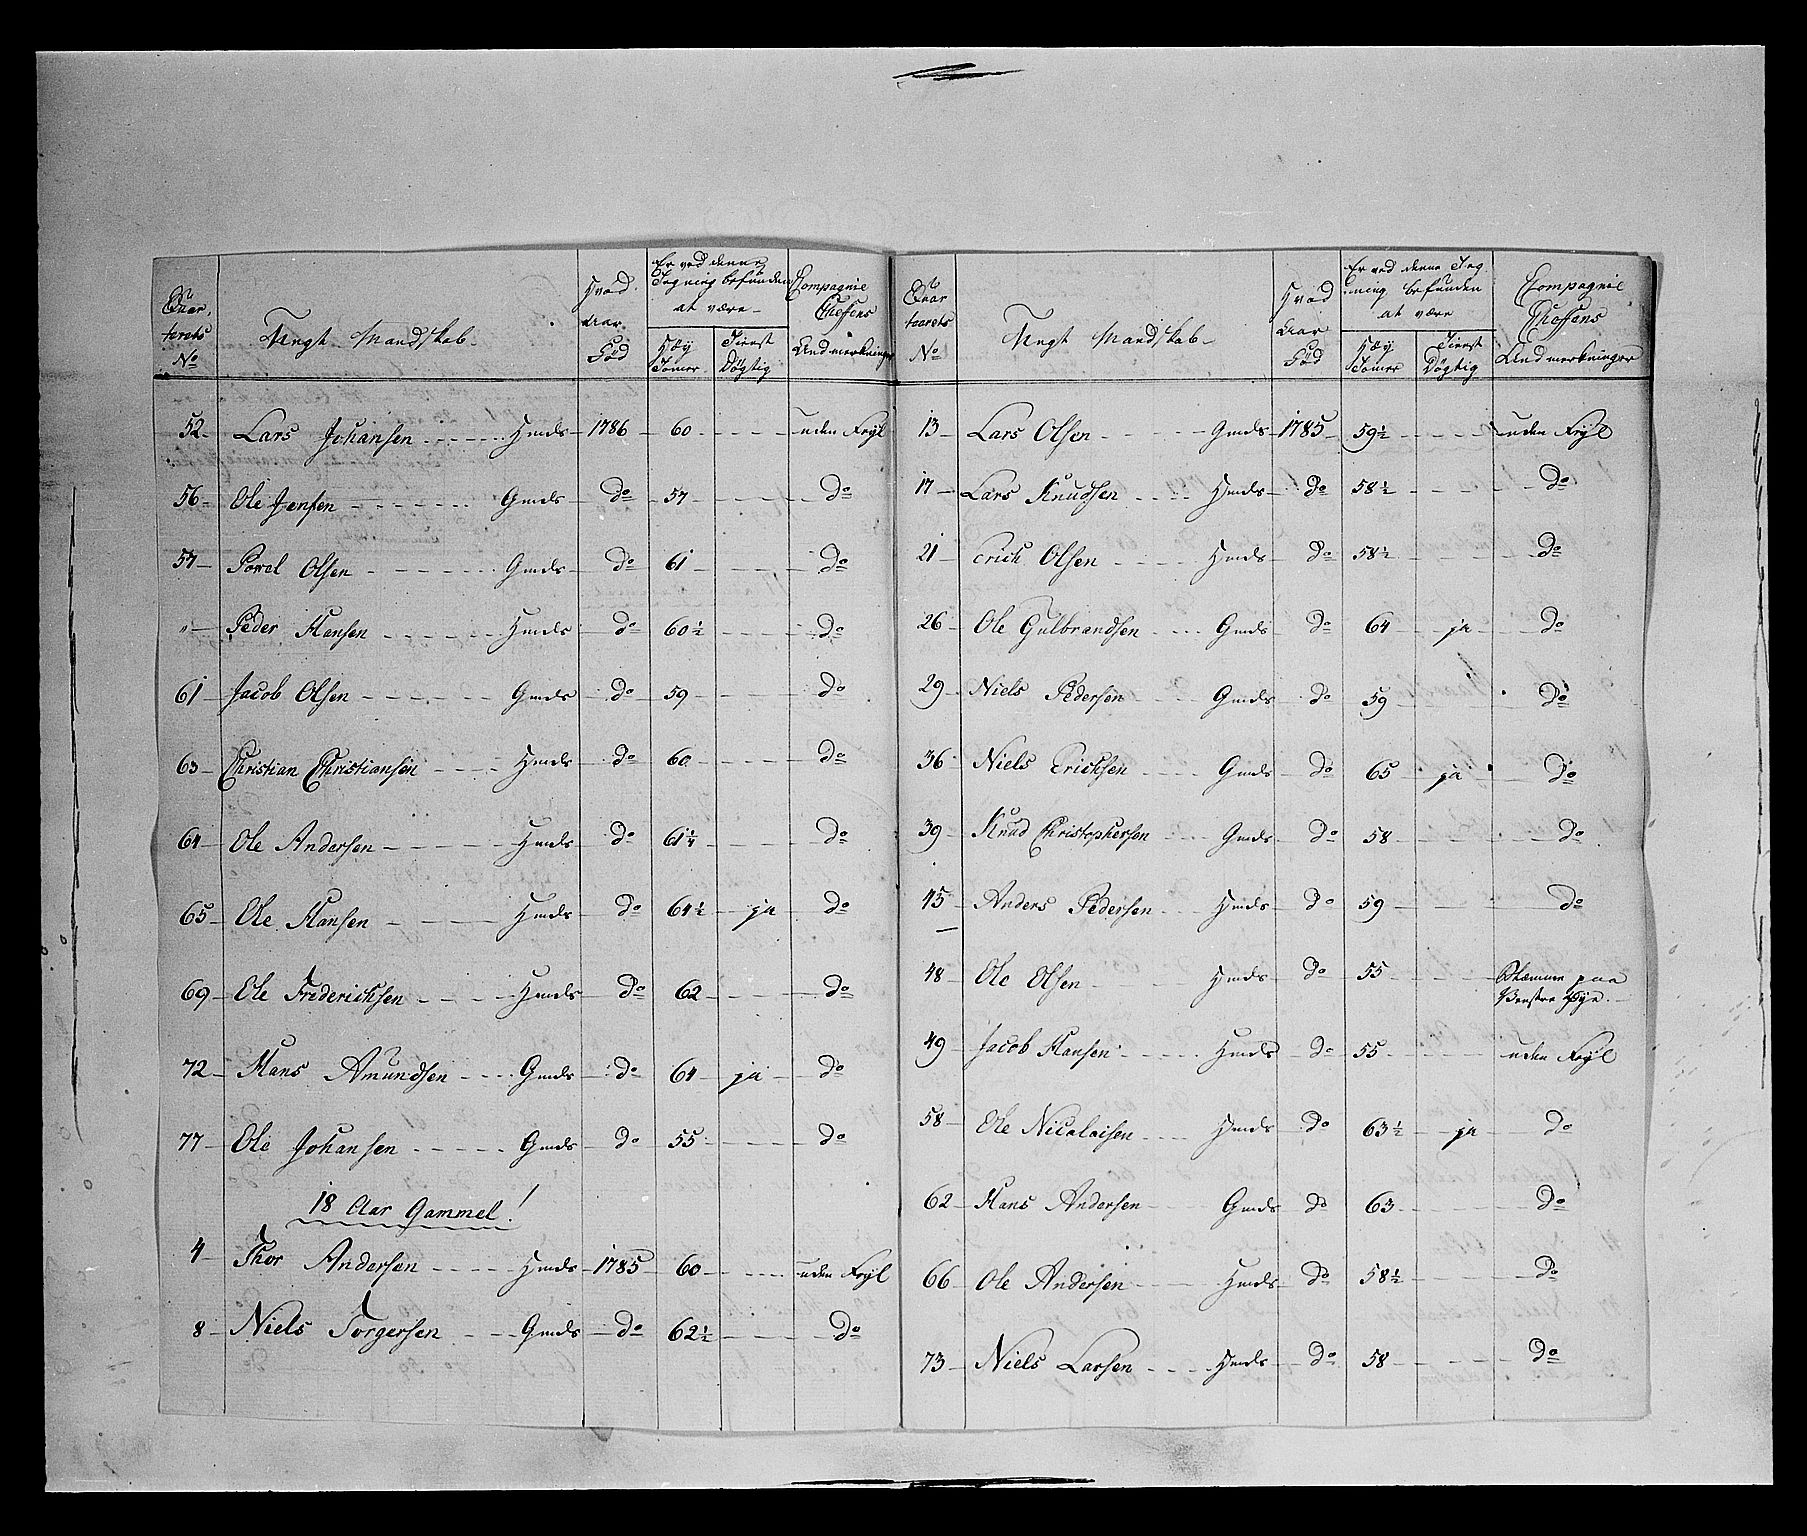 Quar,
teerets
No
Ungt Mandskab
Hvad
Aar
Fød
Er ved denne
Segning befunden
at være
Høy
Tomer
Tienst
Døgtig
Compagnie
Cheffens
Andmerkninger
52 Lars Johansen Hmds 1786 60 uden Fejl
56 Ole Jensen Gmds do 57 do
57 Powel Olsen Gmds do 61 do
" Peder Hansen Hmds do 60½ do
61 Jacob Olsen Gmds do 59 do
63 Christian Christiansen Hmds do 60 do
64 Ole Andersen Hmds do 61¼ do
65 Ole Hansen Hmds do 64½ ja do
69 Ole Frederichsen Hmds do 62 do
72 Hans Amundsen Gmds do 64 ja do
77 Ole Johansen Gmds do 55 do
18 Aar Gammel!
4 Thor Andersen Hmds 1785 60 uden Fejl
8 Niels Torgersen Gmds do 62½ do
Quar
teerets
No
Ungt Mandskab
Hvad
Aar
Fød
Er ved denne Seg
ning befunden
at være
Høy
Tomer
Tienst
Døgtig
Compagnie
Cheffens
Andmerkninger
13 Lars Olsen Gmds 1785 59½ uden Fejl
17 Lars Knudsen Hmds do 58½ do
21 Erich Olsen Hmds do 58½ do
26 Ole Gulbrandsen Gmds do 64 ja do
29 Niels Pedersen Gmds do 59 do
36 Niels Erichsen Gmds do 65 ja do
39 Knud Christophersen Gmds do 58 do
45 Anders Pedersen Hmds do 59 do
48 Ole Olsen Hmds do 55 Skæmme paa
Venstre Øye.
49 Jacob Hansen Hmds do 55 uden Fejl
58 Ole Nicolaisen Hmds do 63½ ja do
62 Hans Andersen Gmds do 63 do
66 Ole Andersen Hmds do 58½ do
73 Niels Larsen Hmds do 58 do